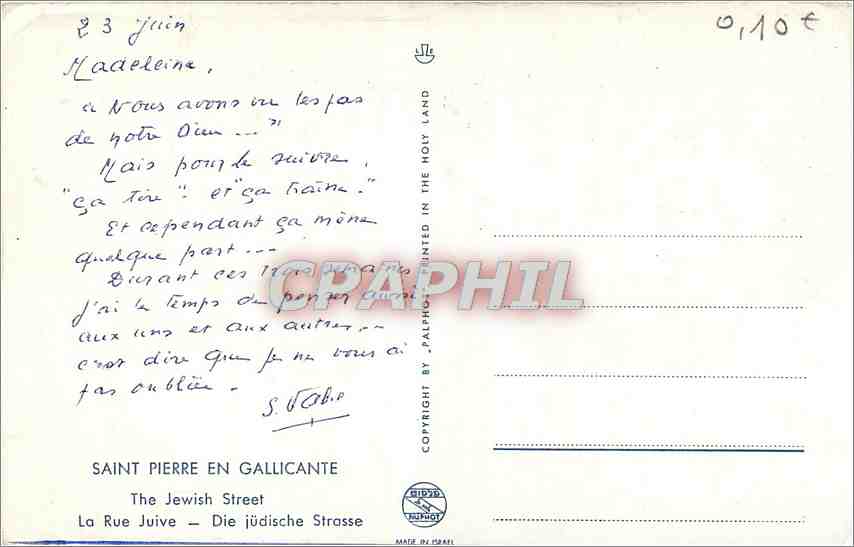 23 juin
0,10 €
Madeleine,
" Nous avons vu les pas
de notre Dieu ... "
Mais pour le suivre,
"ça tire" et "ça traîne."
Et cependant ça mène
quelque part ...
Durant ces trois semaines
j'ai le temps de penser aussi
aux uns et aux autres ...
c'est dire que je ne vous ai
pas oubliée.
S.
SAINT PIERRE EN GALLICANTE
The Jewish Street
La Rue Juive — Die jüdische Strasse
COPYRIGHT BY „PALPHOT" PRINTED IN THE HOLY LAND
PALPHOT
MADE IN ISRAEL
CPAPHIL